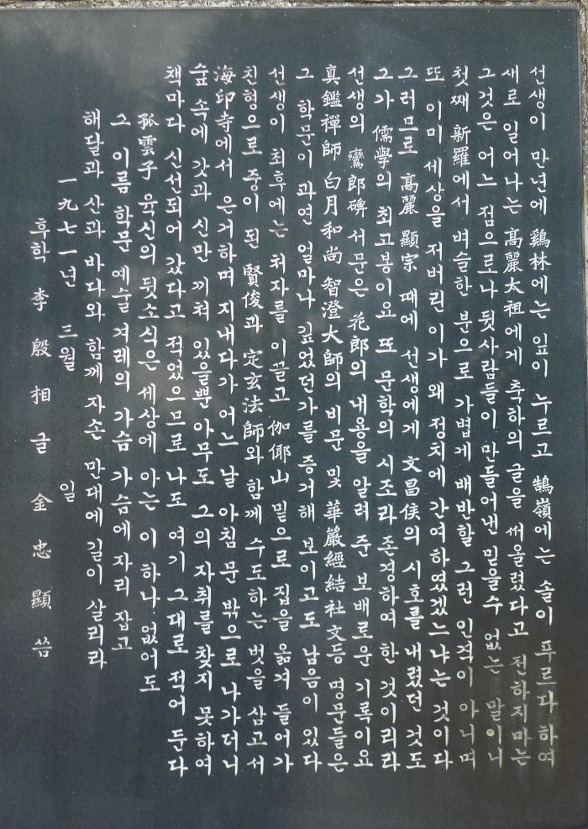 선생이 만년에 鷄林에는 잎이 누르고 鵠嶺에는 솔이 푸르다 하여
새로 일어나는 高麗太祖에게 축하의 글을 써올렸다고 전하지마는
그것은 어느 점으로나 뒷사람들이 만들어낸 믿을수 없는 말이니
첫째 新羅에서 벼슬한 분으로 가볍게 배반할 그런 인격이 아니며
또 이미 세상을 저버린 이가 왜 정치에 간여하였겠느냐는 것이다
그러므로 高麗 顯宗 때에 선생에게 文昌侯의 시호를 내렸던 것도
그가 儒學의 최고봉이요 또 문학의 시조라 존경하여 한 것이리라
선생의 鸞郎碑 서문은 花郎의 내용을 알려 준 보배로운 기록이요
真鑑禪師 白月和尙 智澄大師의 비문 및 華嚴經結社文등 명문들은
그 학문이 과연 얼마나 깊었던가를 증거해 보이고도 남음이 있다
선생이 최후에는 처자를 이끌고 伽倻山 밑으로 집을 옮겨 들어가
친형으로 중이 된 賢俊과 定玄法師와 함께 수도하는 벗을 삼고서
海印寺에서 은거하며 지내다가 어느 날 아침 문 밖으로 나가더니
숲 속에 갓과 신만 끼쳐 있을뿐 아무도 그의 자취를 찾지 못하여
책마다 신선되어 갔다고 적었으므로 나도 여기 그대로 적어 둔다
孤雲子 육신의 뒷소식은 세상에 아는 이 하나 없어도
그 이름 학문 예술 겨레의 가슴 가슴에 자리 잡고
해달과 산과 바다와 함께 자손 만대에 길이 살리라
一九七一년 三월 일
후학 李殷相 글 金忠顯 씀